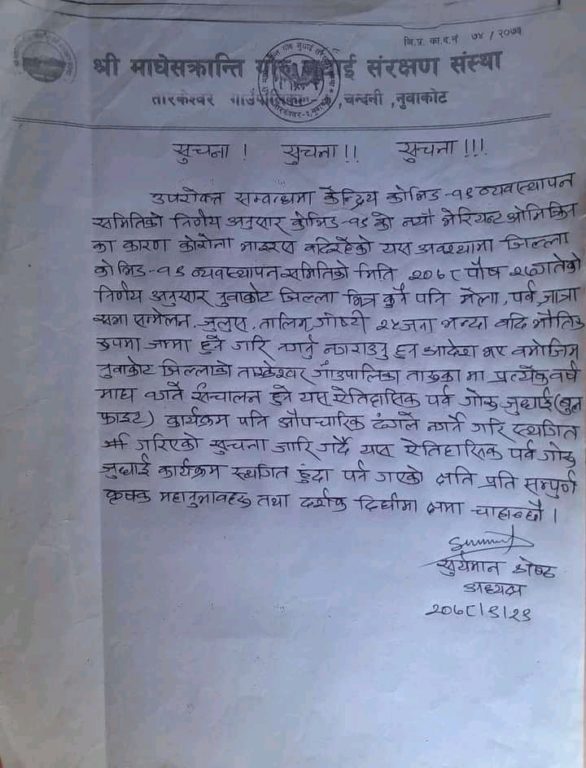 जि.प्र.का.द.नं ७४/२०७७
श्री माघेसक्रान्ति गोरु जुधाई संरक्षण संस्था
तारकेश्वर गाउँपालिका, चन्दनी, नुवाकोट
सुचना! सुचना!! सुचना!!!
उपरोक्त सम्वन्धमा केन्द्रिय कोभिड-१९ व्यवस्थापन
समितिको निर्णय अनुसार कोभिड-१९ को नयाँ भेरियन्ट ओमिक्रोन
का कारण कोरोना भाइरस बढिरहेको यस अवस्थामा जिल्ला
कोभिड-१९ व्यवस्थापन समितिको मिति २०७८ पौष २७ गतेको
निर्णय अनुसार नुवाकोट जिल्ला भित्र कुनै पनि मेला, पर्व, जात्रा
सभा सम्मेलन, जुलुस, तालिम, गोष्टी २५ जना भन्दा बढि भौतिक
रुपमा जम्मा हुने गरि नगर्नु नगराउनु हुन आदेश भए बमोजिम
नुवाकोट जिल्लाको तारकेश्वर गाँउपालिका तारुका मा प्रत्येक वर्ष
माघ १ गते संचालन हुने यस ऐतिहासिक पर्व गोरु जुधाई (बुल
फाइट) कार्यक्रम पनि औपचारिक ढंगले नगर्ने गरि स्थगित
गरिएको सुचना जारि गर्दै यस ऐतिहासिक पर्व गोरु
जुधाई कार्यक्रम स्थगित हुंदा पर्न गएको क्षति प्रति सम्पुर्ण
कृषक महानुभावहरु तथा दर्शक दिर्घामा क्षमा चाहन्छौ।
सुर्यमान श्रेष्ठ
अध्यक्ष
२०७८/९/२९